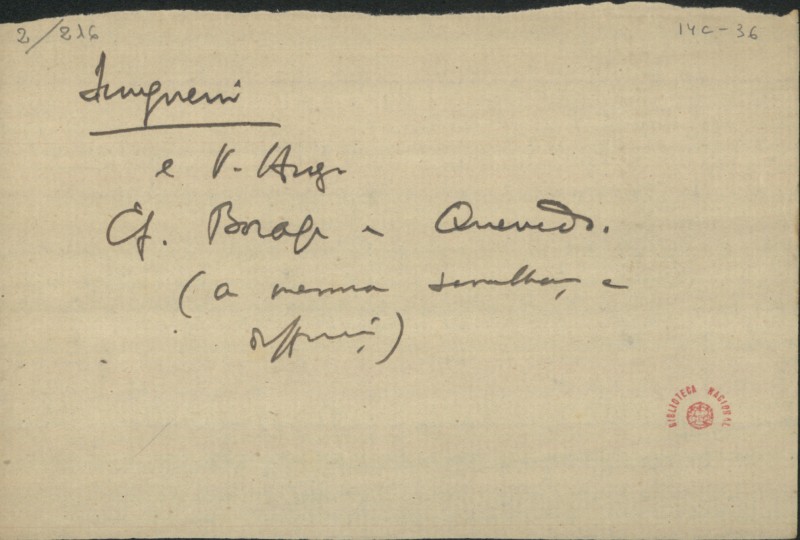 2/216
14C-36
Junqueiro
e V. Hugo
Cf. Bocage e Quevedo.
(a mesma semelhança e
differença)
BIBLIOTECA NACIONAL